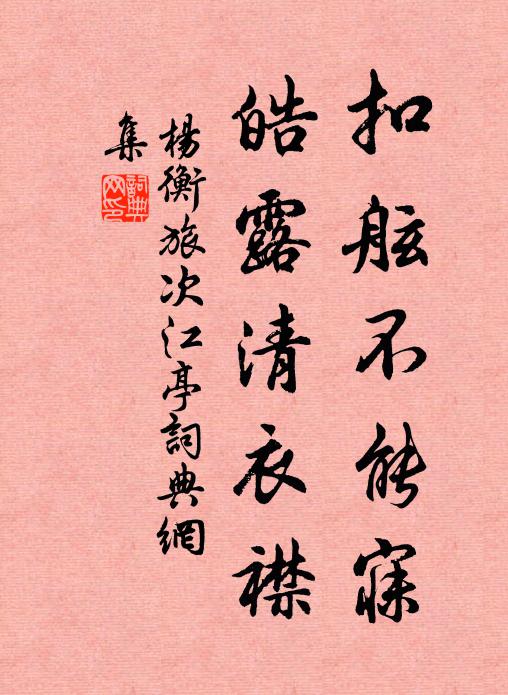 扣舷不能寐
皓露清衣襟
楊衡旅次江亭詞典網
集
詞典
网印